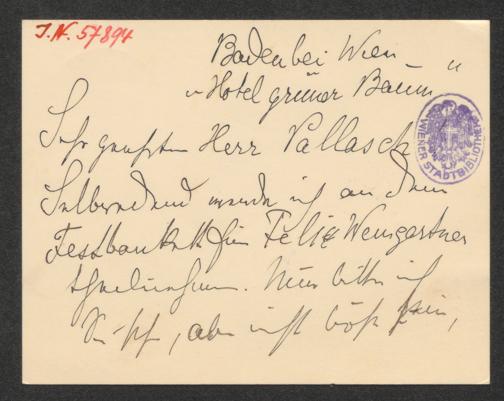 I.N. 57894
Baden bei Wien –
„Hotel grüner Baum"
Sehr geehrter Herr Pallasch
Selbredend werde ich an dem
Festbankett für Felix Weingartner
theilnehmen. Nur bitte ich
Sie sehr, aber nicht böse sein,
WIENER STADTBIBLIOTHEK